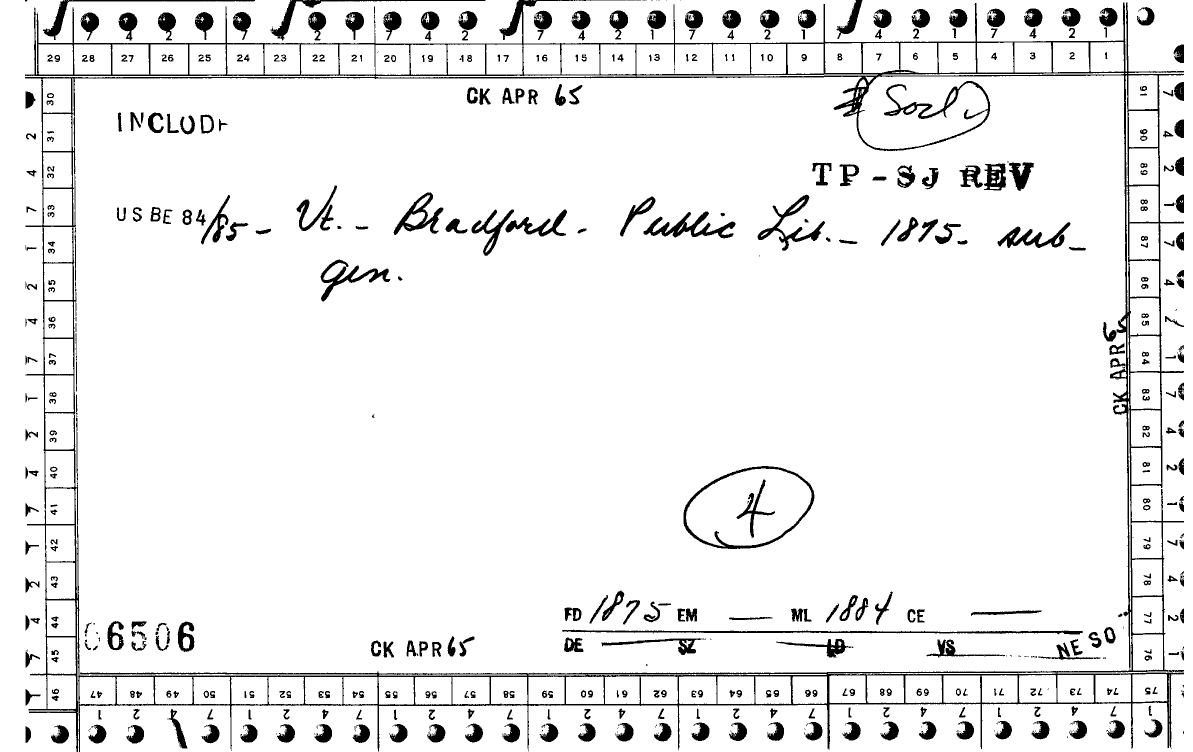 7 4 2 1 7 4 2 1 7 4 2 1 7 4 2 1 7 4 2 1 7 4 2 1 7 4 2 1
29 28 27 26 25 24 23 22 21 20 19 18 17 16 15 14 13 12 11 10 9 8 7 6 5 4 3 2 1
CK APR 65
INCLUDE
TP-SJ REV
US BE 84/85 - Vt. - Bradford. Public Lib. - 1875 - sub-
gen.
CK APR 65
4
FD 1875 EM — ML 1884 CE —
06506
CK APR 65
DE — SZ — LD VS NE SO
30 31 32 33 34 35 36 37 38 39 40 41 42 43 44 45 46
91 90 89 88 87 86 85 84 83 82 81 80 79 78 77 76
47 48 49 50 51 52 53 54 55 56 57 58 59 60 61 62 63 64 65 66 67 68 69 70 71 72 73 74 75
1 2 4 7 1 2 4 7 1 2 4 7 1 2 4 7 1 2 4 7 1 2 4 7 1 2 4 7 1